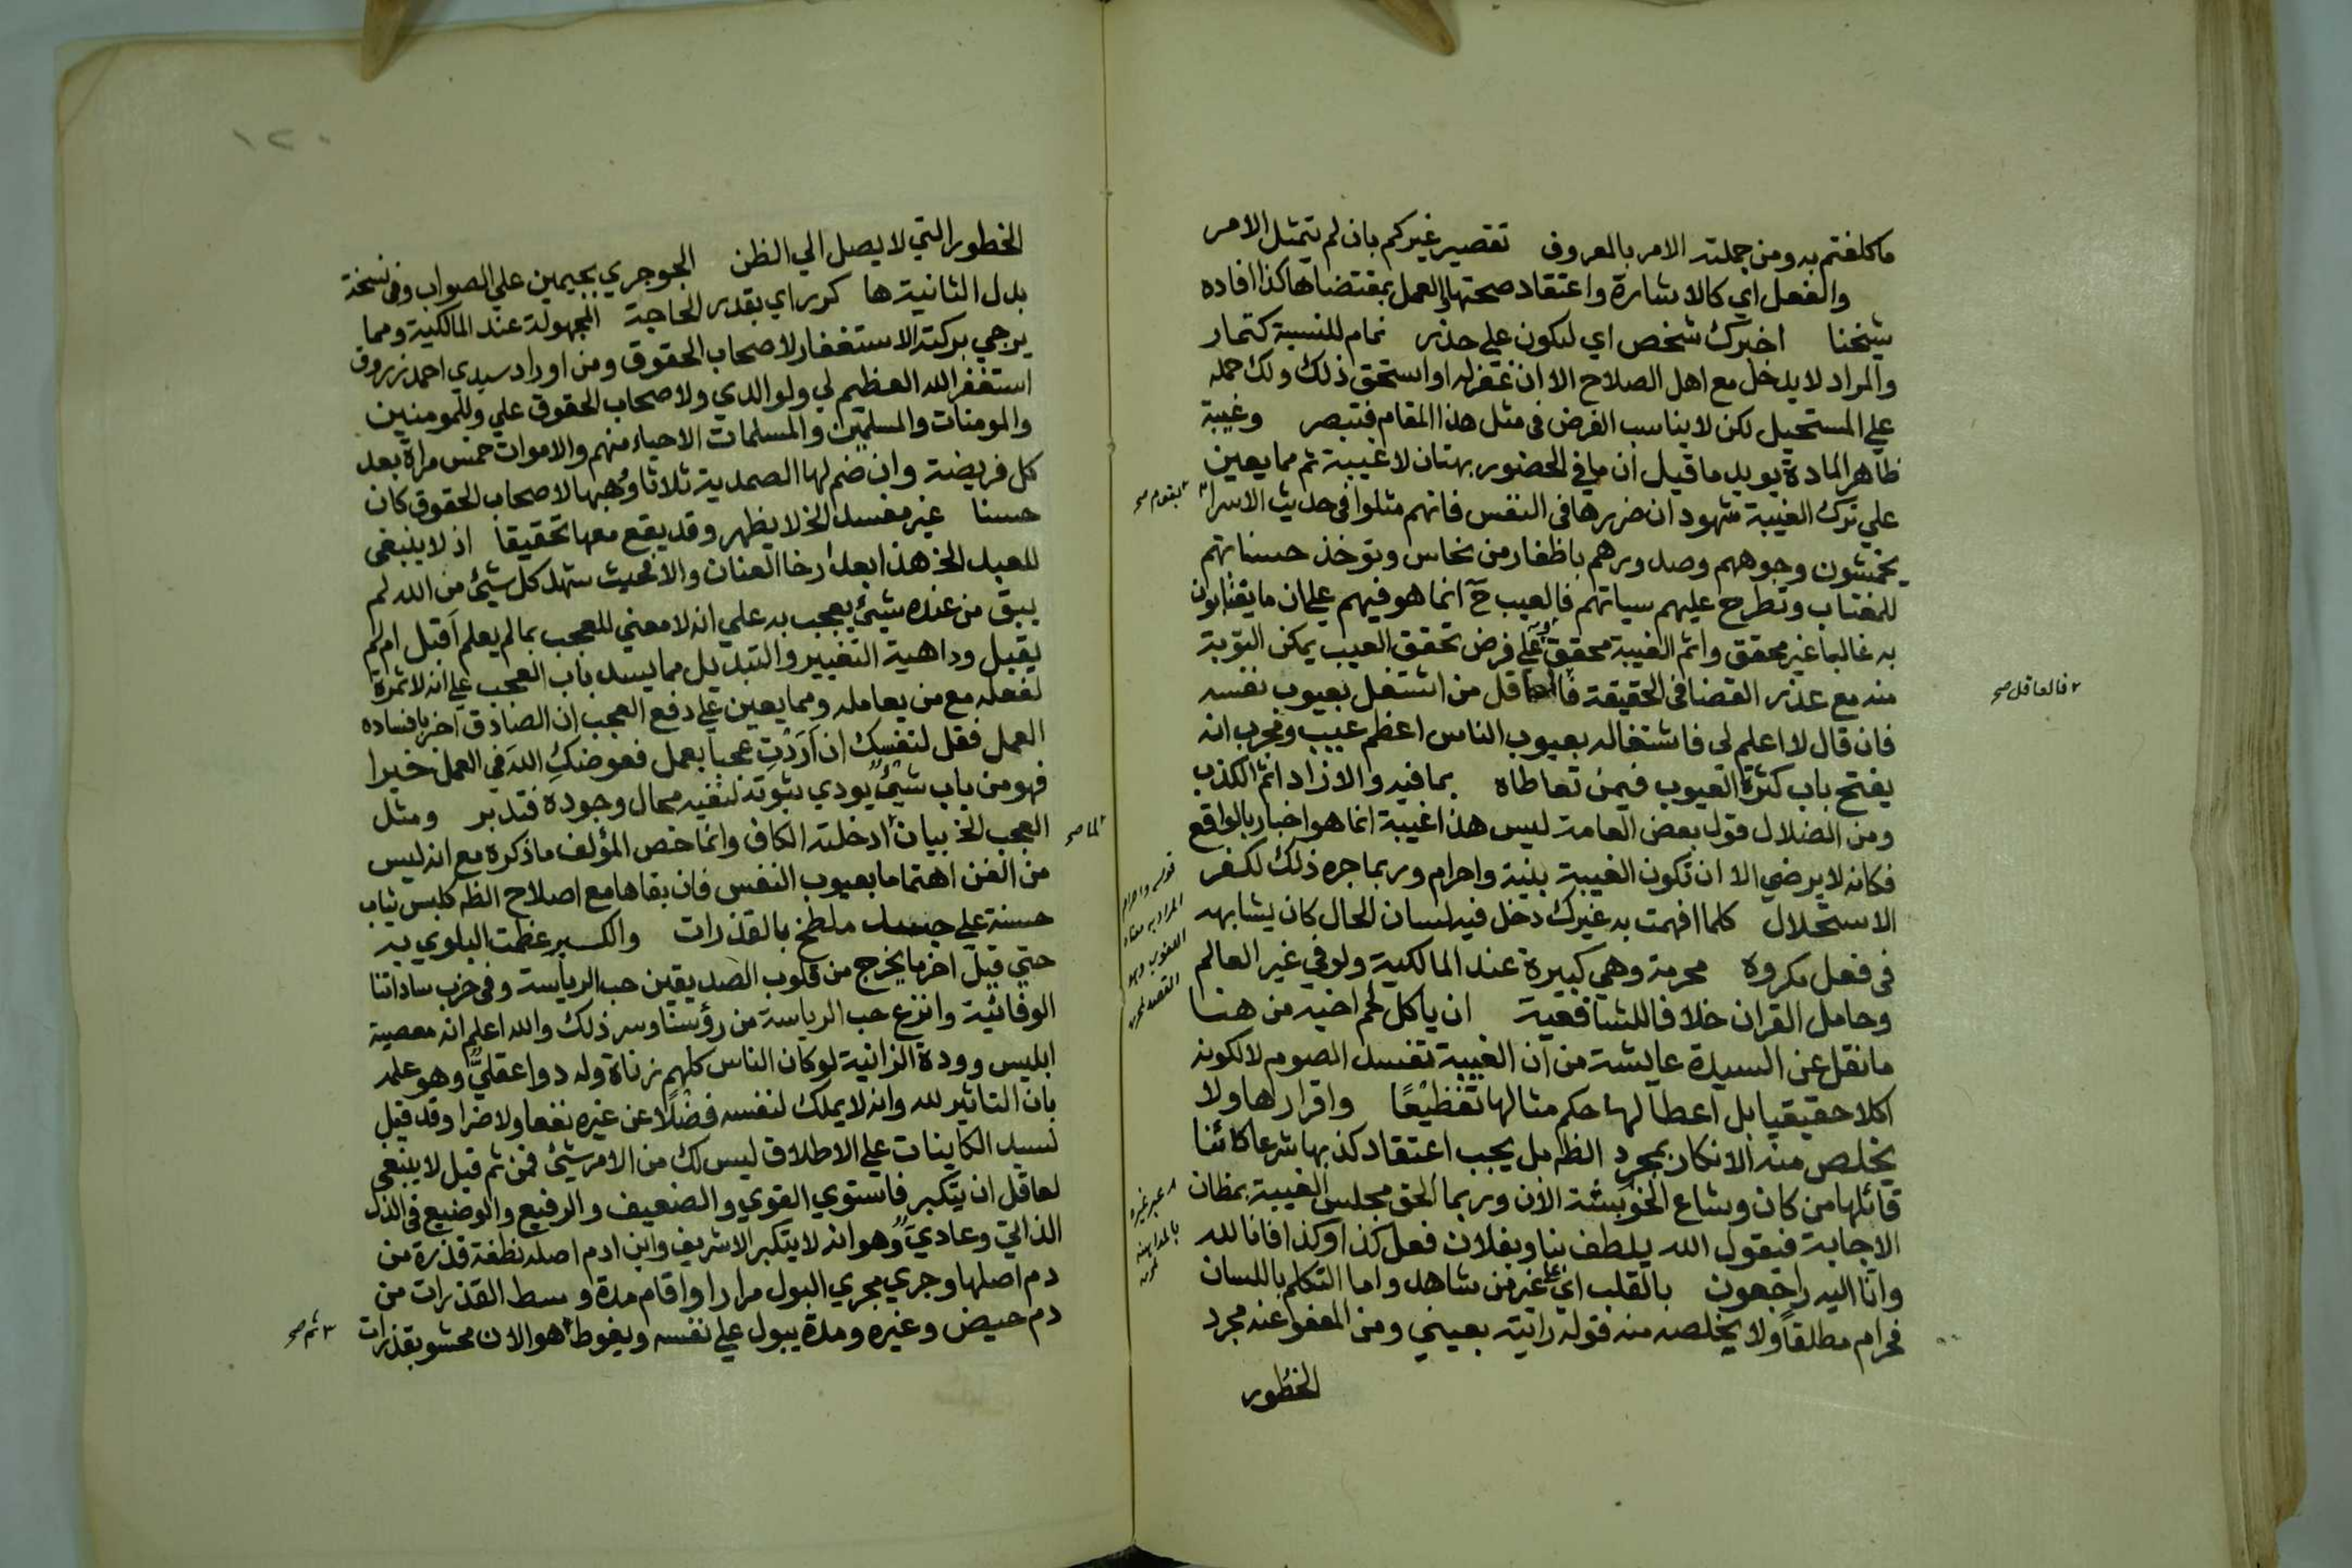 ما كلفتم به ومن جملته الامر بالمعروف تقصير غيركم بان لم يتمثل الامر
والفعل اي كالاشارة واعتقاد صحتها والعمل بمقتضاها كذا افاده
شيخنا اخبرك شخص اي لتكون على حذر نمام للنسبة كتمار
والمراد لا يدخل مع اهل الصلاح الا ان غفر له او استحق ذلك ولك حمله
علي المستحيل لكن لا يناسب الغرض في مثل هذا المقام فتبصر وغيبة
ظاهر المادة يويد ما قيل ان ما في الحضور بهتان لا غيبة ثم مما يعين
علي ترك الغيبة شهود ان ضررها في النفس فانهم مثلوا في حديث الاسرا
بقوم صح
يخمشون وجوههم وصدورهم باظفار من نحاس وتوخذ حسناتهم
للمغتاب وتطرح عليهم سياتهم فالعيب ح انما هو فيهم علي ان ما يغتابون
به غالبا غير محقق واثم الغيبة محقق وعلي فرض تحقق العيب يمكن التوبة
منه مع عذر القضا في الحقيقة فالعاقل من اشتغل بعيوب نفسه
فالعاقل صح
فان قال لا اعلم لي فاشتغاله بعيوب الناس اعظم عيب ومجرب انه
يفتح باب كثرة العيوب فيمن تعاطاه بما فيه والا زاد اثم الكذب
ومن الضلال قول بعض العامة ليس هذا غيبة انما هو اخبار بالواقع
فكانه لا يرضي الا ان تكون الغيبة بنية واحرام وربما جره ذلك لكفر
قوله واحرام
المراد به معناه
اللغوي وهو
القصد
الاستحلال كلما افهمت به غيرك دخل فيه لسان الحال كان يشابهه
في فعل مكروه محرمة وهي كبيرة عند المالكية ولو في غير العالم
وحامل القران خلافا للشافعية ان ياكل لحم اخيه من هنا
ما نقل عن السيدة عايشة من ان الغيبة تفسد الصوم لا لكونه
اكلا حقيقيا بل اعطا لها حكم مثالها تفظيعًا واقرارها ولا
يخلص منه الانكار بمجرد الظ بل يجب اعتقاد كذبها شرعا كائنا
قائلها من كان وشاع الخوبيثة الان وربما الحق مجلس الغيبة بمظان
عبر غيره
بالمداهنة
الاجابة فيقول الله يلطف بنا وبفلان فعل كذا وكذا فانا لله
وانا اليه راجعون بالقلب اي علي غير من شاهد واما التكلم باللسان
فحرام مطلقاً ولا يخلصه منه قوله رايته بعيني ومن المعفو عنه مجرد
الخطور
١٢٠
الخطور التي لا يصل الي الظن الجوجري بجيمين علي الصواب وفي نسخة
بدل الثانية ها كرر اي بقدر الحاجة المجهولة عند المالكية ومما
يرجي بركته الاستغفار لاصحاب الحقوق ومن اوراد سيدي احمد زروق
استغفر الله العظيم لي ولوالدي ولاصحاب الحقوق علي وللمومنين
والمومنات والمسلمين والمسلمات الاحياء منهم والاموات خمس مراة بعد
كل فريضة وان ضم لها الصمدية ثلاثا وهبها لاصحاب الحقوق كان
حسنا غير مفسد الخ لا يظهر وقد يقع معها تحقيقا اذ لا ينبغي
للعبد الخ هذا بعد ارخا العنان والا فحيث شهد كل شيئ من الله لم
يبق من عنده شيئ يعجب به علي انه لا معني للعجب بما لم يعلم اقبل ام لم
يقبل وداهية التغيير والتبديل مما يسد باب العجب علي انه لا ثمرة
لفعله مع من يعامله ومما يعين علي دفع العجب ان الصادق اخبر بافساده
العمل فقل لنفسك ان اَرَدْتِ عجبا بعمل فعوضكِ الله في العمل خيرا
فهو من باب شيئ يودي ثبوته لنفيه محال وجوده فتدبر ومثل
العجب الخ بيان ادخلته الكاف وانما خص المؤلف ما ذكره مع انه ليس
لما صح
من الفن اهتماما بعيوب النفس فان بقاها مع اصلاح الظ كلبس ثياب
حسنة علي جسد ملطخ بالقذرات والكبر عظمت البلوي به
حتي قيل اخر ما يخرج من قلوب الصديقين حب الرياسة وفي حزب ساداتنا
الوفائية وانزع حب الرياسة من رؤسنا وسر ذلك والله اعلم انه معصية
ابليس وودة الزانية لو كان الناس كلهم زناة وله دوا عقليّ وهو علمه
بان التاثير لله وانه لا يملك لنفسه فضلا عن غيره نفعا ولا ضرا وقد قيل
لسيد الكاينات علي الاطلاق ليس لك من الامر شيئ فمن ثم قيل لا ينبغي
لعاقل ان يتكبر فاستوي القوي والضعيف والرفيع والوضيع في الذل
الذاتي وعاديّ وهو انه لا يتكبر الا شريف وابن ادم اصله نطفة قذرة من
دم اصلها وجري مجري البول مرارا واقام مدة وسط القذرات من
دم حيض وغيره ومدة يبول علي نفسه ويغوط هو الان محشو بقذرات
ثم صح